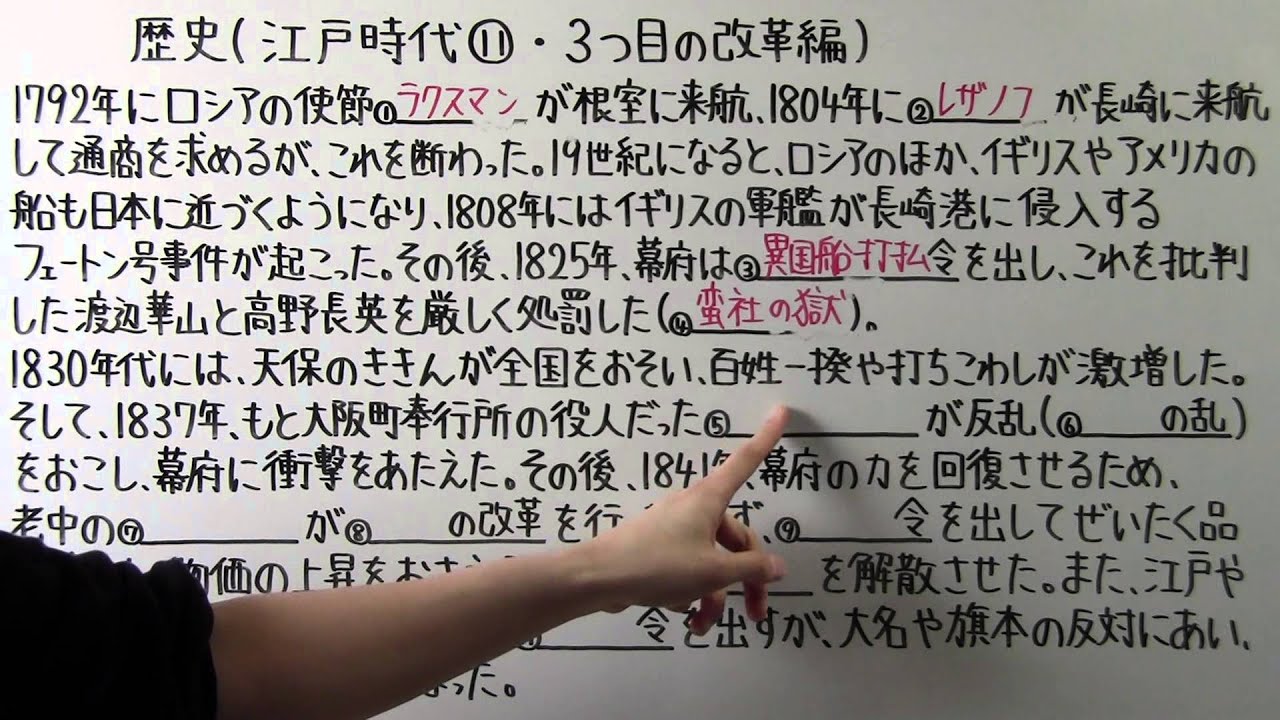 歴史(江戸時代⑪・3つ目の改革編)
1792年にロシアの使節①ラクスマンが根室に来航、1804年に②レザノフが長崎に来航
して通商を求めるが、これを断わった。19世紀になると、ロシアのほか、イギリスやアメリカの
船も日本に近づくようになり、1808年にはイギリスの軍艦が長崎港に侵入する
フェートン号事件が起こった。その後、1825年、幕府は③異国船打払令を出し、これを批判
した渡辺華山と高野長英を厳しく処罰した(④蛮社の獄)。
1830年代には、天保のききんが全国をおそい、百姓一揆や打ちこわしが激増した。
そして、1837年、もと大阪町奉行所の役人だった⑤ が反乱(⑥ の乱)
をおこし、幕府に衝撃をあたえた。その後、1841年、幕府の力を回復させるため、
老中の⑦ が⑧ の改革を行 ず、⑨ 令を出してぜいたく品
物価の上昇をおさ を解散させた。また、江戸や
令を出すが、大名や旗本の反対にあい、
った。